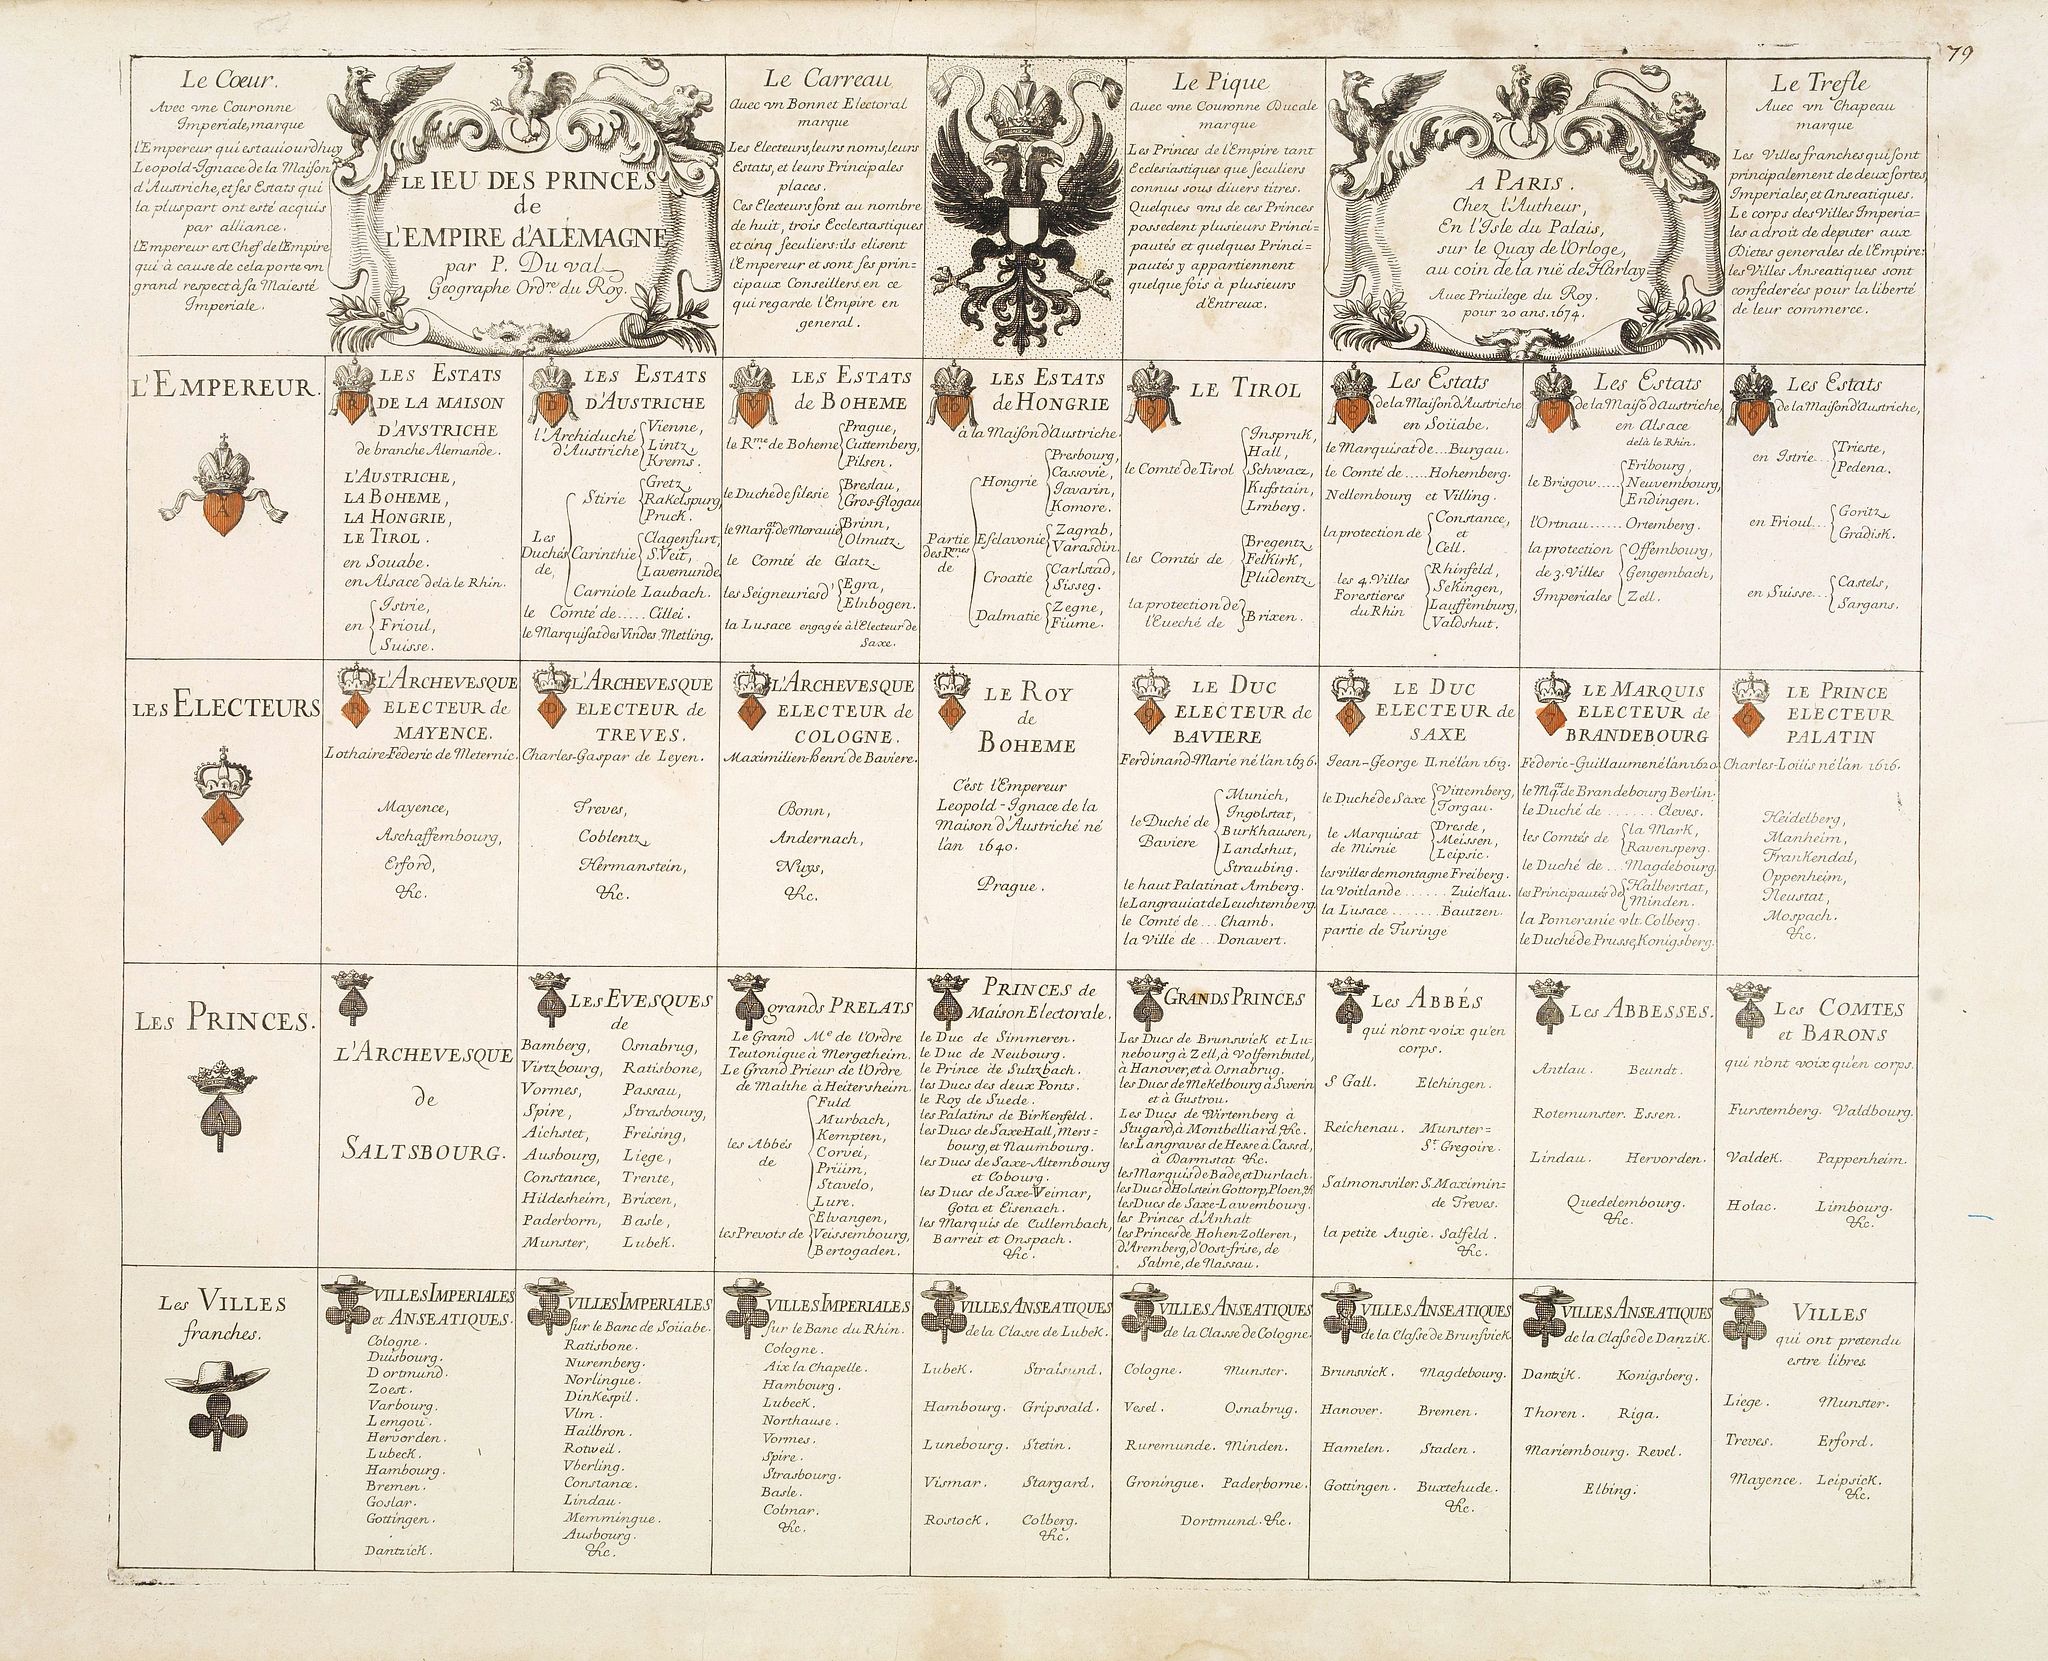 79
Le Cœur.
Avec vne Couronne
Imperiale, marque
l'Empereur qui est auiourdhuy
Leopold-Ignace de la Maison
d'Austriche, et ses Estats qui
la pluspart ont esté acquis
par alliance.
l'Empereur est Chef de l'Empire
qui à cause de cela porte vn
grand respect à sa Maiesté
Imperiale.
LE IEU DES PRINCES
de
L'EMPIRE d'ALEMAGNE
par P. Du val
Geographe Ordre du Roy.
Le Carreau
Auec vn Bonnet Electoral
marque
Les Electeurs, leurs noms, leurs
Estats, et leurs Principales
places.
Ces Electeurs sont au nombre
de huit, trois Ecclestastiques
et cinq seculiers: ils elisent
l'Empereur et sont ses prin-
cipaux Conseillers, en ce
qui regarde l'Empire en
general.
Le Pique
Auec vne Couronne Ducale
marque
Les Princes de l'Empire tant
Ecclesiastiques que seculiers
connus sous diuers titres.
Quelques vns de ces Princes
possedent plusieurs Princi-
pautés et quelques Princi-
pautés y appartiennent
quelque fois à plusieurs
d'Entreux.
A PARIS.
Chez l'Autheur,
En l'Isle du Palais,
sur le Quay de l'Orloge,
au coin de la ruë de Harlay
Auec Priuilege du Roy.
pour 20 ans. 1674.
Le Trefle
Auec vn Chapeau
marque
Les Villes franches qui sont
principalement de deux sortes,
Imperiales, et Anseatiques.
Le corps des Villes Imperia-
les a droit de deputer aux
Dietes generales de l'Empire:
les Villes Anseatiques sont
confederées pour la liberté
de leur commerce.
L'EMPEREUR.
A
R
LES ESTATS
DE LA MAISON
D'AVSTRICHE
de branche Alemande.
L'AUSTRICHE,
LA BOHEME,
LA HONGRIE,
LE TIROL.
en Souabe.
en Alsace delà le Rhin.
en Istrie,
Frioul,
Suisse.
D
LES ESTATS
D'AUSTRICHE
l'Archiduché d'Austriche Vienne,
Lintz,
Krems.
Les Duchés de, Stirie Gretz,
Rakelspurg,
Pruck.
Carinthie Clagenfurt,
S. Veit,
Lavemunde
Carniole Laubach.
le Comté de..... Cillei.
le Marquisat des Vindes Metling.
V
LES ESTATS
de BOHEME
le Rme de Boheme Prague,
Cuttemberg,
Pilsen.
le Duché de silesie Breslau,
Gros-Glogau
le Marqat de Moravie Brinn,
Olmutz.
le Comté de Glatz.
les Seigneuries d' Egra,
Elnbogen.
la Lusace engagée à l'Electeur de
Saxe.
10
LES ESTATS
de HONGRIE
à la Maison d'Austriche.
Partie des Rmes de Hongrie Presbourg,
Cassovie,
Javarin,
Komore.
Esclavonie Zagrab,
Varasdin.
Croatie Carlstad,
Sisseg.
Dalmatie Zegne,
Fiume.
9
LE TIROL
le Comté de Tirol Inspruk,
Hall,
Schwacz,
Kufstain,
Lrnberg.
les Comtés de Bregentz,
Felkirk,
Pludentz.
la protection de l'Eueché de Brixen.
8
Les Estats
de la Maison d'Austriche
en Soüabe.
le Marquisat de... Burgau.
le Comté de..... Hohemberg.
Nellembourg et Villing.
la protection de Constance,
et
Cell.
les 4. Villes Forestieres du Rhin Rhinfeld,
Sekingen,
Lauffemburg,
Valdshut.
Les Estats
de la Maisõ d'Austriche,
en Alsace
delà le Rhin.
le Brisgow.... Fribourg,
Neuvembourg,
Endingen.
l'Ortnau...... Ortemberg.
la protection de 3. Villes Imperiales Offembourg,
Gengembach,
Zell.
6
Les Estats
de la Maison d'Austriche,
en Istrie... Trieste,
Pedena.
en Frioul... Goritz
Gradisk.
en Suisse... Castels,
Sargans.
LES ELECTEURS
A
R
L'ARCHEVESQUE
ELECTEUR de
MAYENCE.
Lothaire-Federic de Meternic.
Mayence,
Aschaffembourg,
Erford,
&c.
D
L'ARCHEVESQUE
ELECTEUR de
TREVES.
Charles-Gaspar de Leyen.
Treves,
Coblentz,
Hermanstein,
&c.
V
L'ARCHEVESQUE
ELECTEUR de
COLOGNE.
Maximilien-henri de Baviere.
Bonn,
Andernach,
Nuys,
&c.
10
LE ROY
de
BOHEME
C'est l'Empereur
Leopold-Ignace de la
Maison d'Austriché né
l'an 1640.
Prague.
9
LE DUC
ELECTEUR de
BAVIERE
Ferdinand-Marie né l'an 1636.
le Duché de Baviere Munich,
Ingolstat,
Burkhausen,
Landshut,
Straubing.
le haut Palatinat Amberg.
le Langrauiat de Leuchtemberg.
le Comté de... Chamb.
la Ville de... Donavert.
8
LE DUC
ELECTEUR de
SAXE
Jean-George II. né l'an 1613.
le Duché de Saxe Vittemberg,
Torgau.
le Marquisat de Misnie Dresde,
Meissen,
Leipsic.
les villes de montagne Freiberg.
la Voitlande....... Zuickau.
la Lusace........ Bautzen.
partie de Turinge
7
LE MARQUIS
ELECTEUR de
BRANDEBOURG
Federic-Guillaume né l'an 1620.
le Mqat de Brandebourg Berlin.
le Duché de........ Cleves.
les Comtés de la Mark,
Ravensperg.
le Duché de... Magdebourg.
les Principautés de Halberstat,
Minden.
la Pomeranie vlt. Colberg.
le Duché de Prusse, Konigsberg.
6
LE PRINCE
ELECTEUR
PALATIN
Charles-Loüis né l'an 1616.
Heidelberg,
Manheim,
Frankendal,
Oppenheim,
Neustat,
Mospach.
&c.
LES PRINCES.
A
L'ARCHEVESQUE
de
SALTSBOURG.
LES EVESQUES
de
Bamberg, Osnabrug,
Virtzbourg, Ratisbone,
Vormes, Passau,
Spire, Strasbourg,
Aichstet, Freising,
Ausbourg, Liege,
Constance, Trente,
Hildesheim, Brixen,
Paderborn, Basle,
Munster, Lubek.
grands PRELATS
Le Grand Me de l'Ordre
Teutonique à Mergetheim.
Le Grand Prieur de l'Ordre
de Malthe à Heitersheim.
les Abbés de Fuld
Murbach,
Kempten,
Corvei,
Prüüm,
Stavelo,
Lure.
les Prevots de Elvangen,
Veissembourg,
Bertogaden.
PRINCES de
Maison Electorale.
le Duc de Simmeren.
le Duc de Neubourg.
le Prince de Sultzbach.
les Ducs des deux Ponts.
le Roy de Suede.
les Palatins de Birkenfeld.
les Ducs de Saxe-Hall, Mers-
bourg, et Naumbourg.
les Ducs de Saxe-Altembourg
et Cobourg.
les Ducs de Saxe-Veimar,
Gota et Eisenach.
les Marquis de Cullembach,
Barreit et Onspach.
&c.
GRANDS PRINCES
Les Ducs de Brunswick et Lu-
nebourg à Zell, à Volfembutel,
à Hanover, et à Osnabrug.
les Ducs de Mekelbourg à Swerin
et à Gustrou.
Les Ducs de Wirtemberg à
Stugard, à Montbelliard, &c.
les Langraves de Hesse à Cassel,
à Darmstat &c.
les Marquis de Bade, et Durlach.
les Ducs d'Holstein Gottorp, Ploen, &c
les Ducs de Saxe-Lawembourg.
les Princes d'Anhalt
les Princes de Hohen-Zolleren,
d'Aremberg, d'Oost-frise, de
Salme, de Nassau.
Les ABBÉS
qui n'ont voix qu'en
corps.
S Gall. Elchingen.
Reichenau. Munster=
St. Gregoire.
Salmonsviler. S. Maximin=
de Treves.
la petite Augie. Salfeld.
&c.
Les ABBESSES.
Antlau. Beundt.
Rotemunster. Essen.
Lindau. Hervorden.
Quedelembourg.
&c.
Les COMTES
et BARONS
qui n'ont voix qu'en corps.
Furstemberg. Valdbourg.
Valdek. Pappenheim.
Holac. Limbourg.
&c.
Les VILLES
franches.
A
VILLES IMPERIALES
et ANSEATIQUES.
Cologne.
Duisbourg.
Dortmund.
Zoest.
Varbourg.
Lemgou.
Hervorden.
Lubeck.
Hambourg.
Bremen.
Goslar.
Gottingen.
Dantzick.
VILLES IMPERIALES
sur le Banc de Soüabe.
Ratisbone.
Nuremberg.
Norlingue.
Dinkespil.
Vlm.
Hailbron.
Rotweil.
Vberling.
Constance.
Lindau.
Memmingue.
Ausbourg.
&c.
VILLES IMPERIALES
sur le Banc du Rhin.
Cologne.
Aix la Chapelle.
Hambourg.
Lubeck.
Northause.
Vormes.
Spire.
Strasbourg.
Basle.
Colmar.
&c.
VILLES ANSEATIQUES
de la Classe de Lubek.
Lubek. Stralsund.
Hambourg. Gripsvald.
Lunebourg. Stetin.
Vismar. Stargard.
Rostock. Colberg.
&c.
VILLES ANSEATIQUES
de la Classe de Cologne.
Cologne. Munster.
Vesel. Osnabrug.
Ruremunde. Minden.
Groningue. Paderborne.
Dortmund. &c.
VILLES ANSEATIQUES
de la Classe de Brunsvick
Brunsvick. Magdebourg.
Hanover. Bremen.
Hamelen. Staden.
Gottingen. Buxtehude.
&c.
VILLES ANSEATIQUES
de la Classe de Danzik.
Dantzik. Konigsberg.
Thoren. Riga.
Mariembourg. Revel.
Elbing.
VILLES
qui ont pretendu
estre libres
Liege. Munster.
Treves. Erford.
Mayence. Leipsick.
&c.